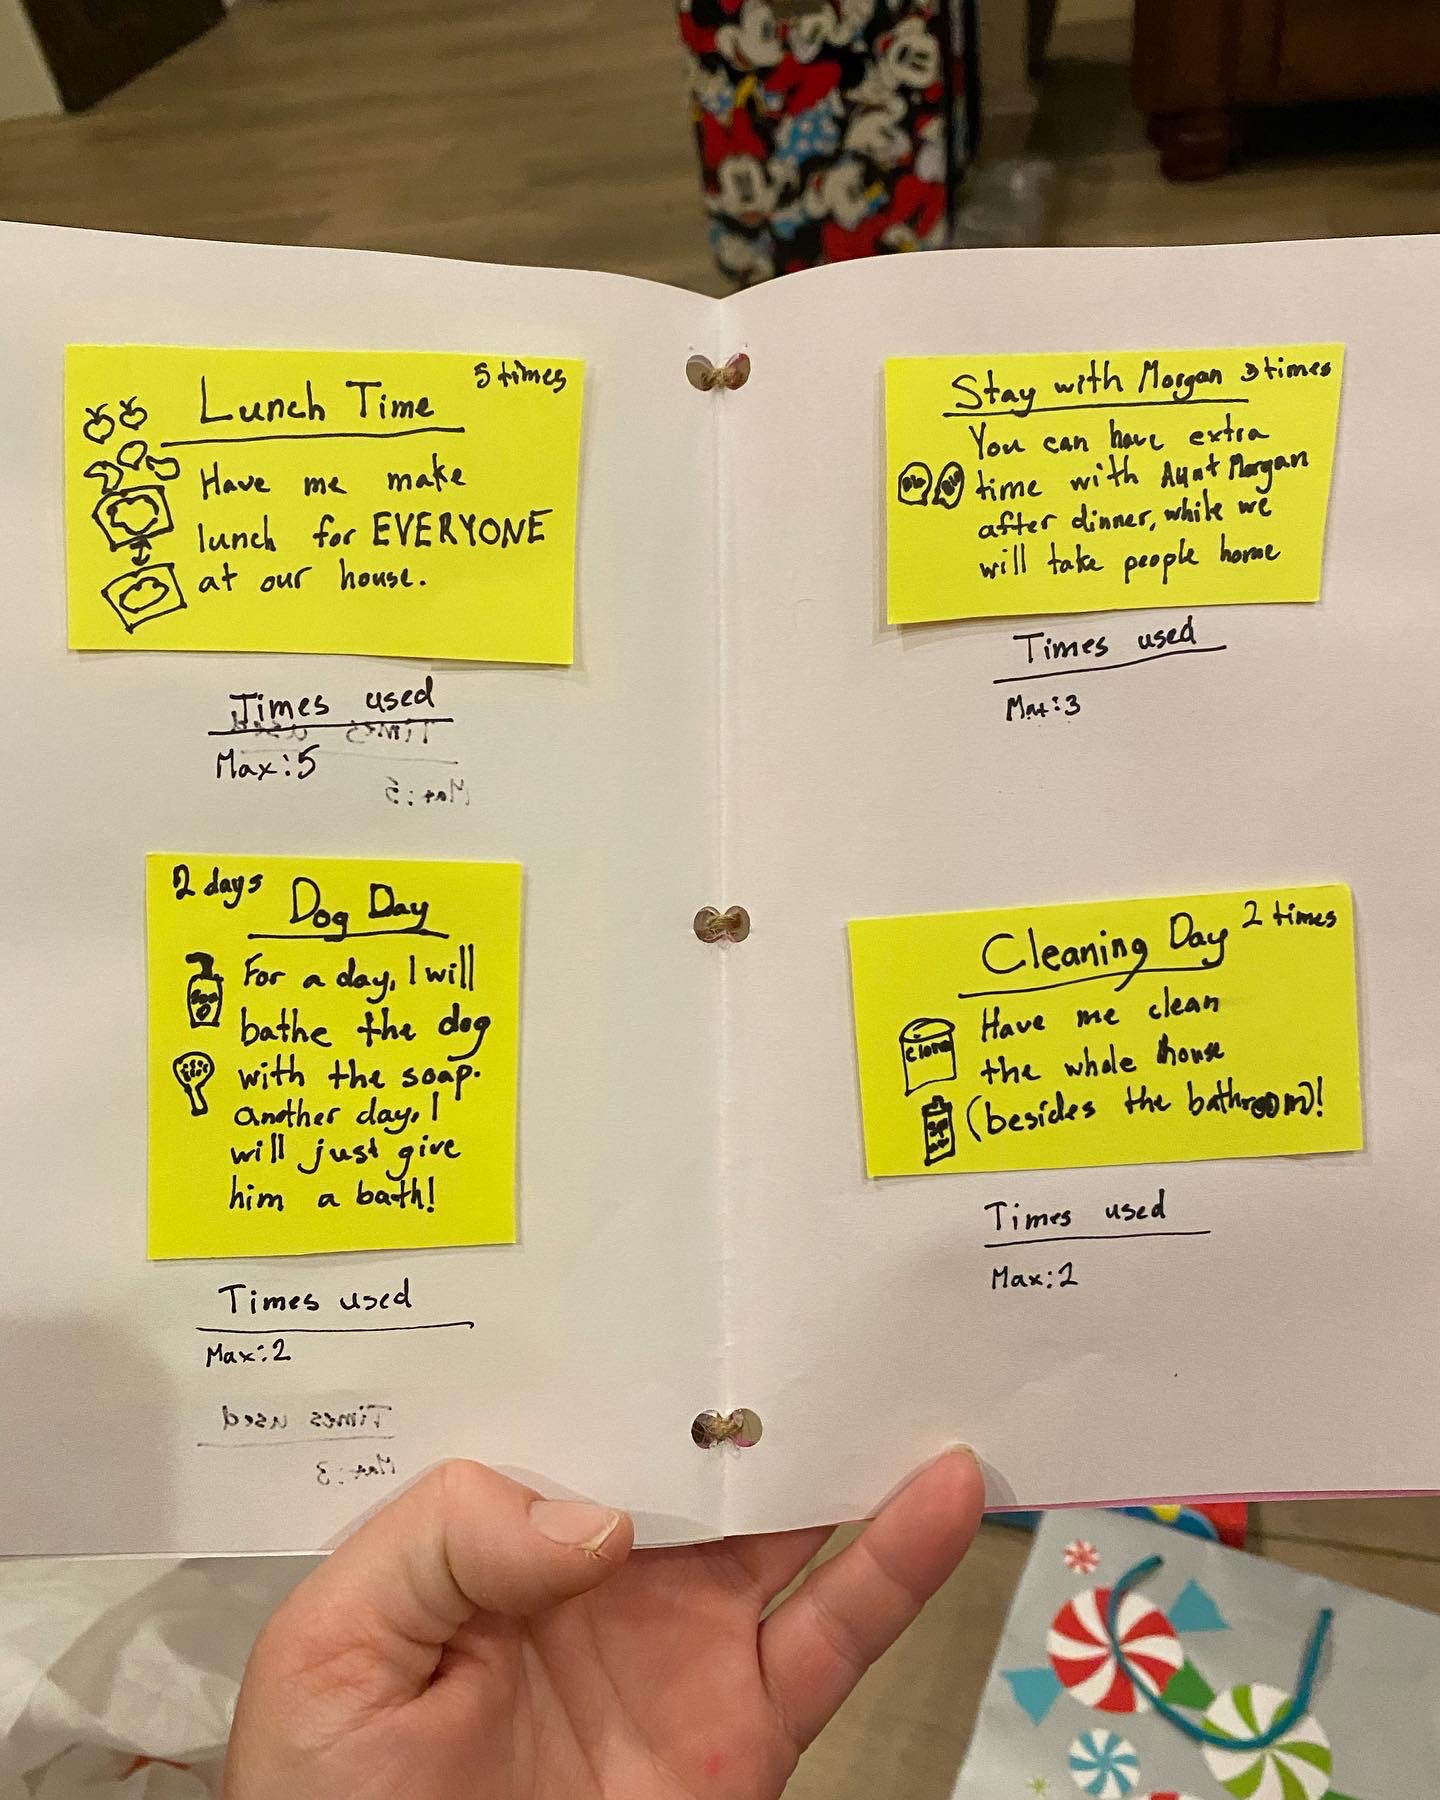 5 times
Lunch Time
Have me make
lunch for EVERYONE
at our house.
Times used
Max:5
2 days
Dog Day
For a day, I will
bathe the dog
with the soap.
another day, I
will just give
him a bath!
Times used
Max:2
Stay with Morgan 3 times
You can have extra
time with Aunt Morgan
after dinner, while we
will take people home
Bla
Bla
Times used
Max:3
Cleaning Day
2 times
Have me clean
the whole house
(besides the bathroom)!
Times used
Max:2